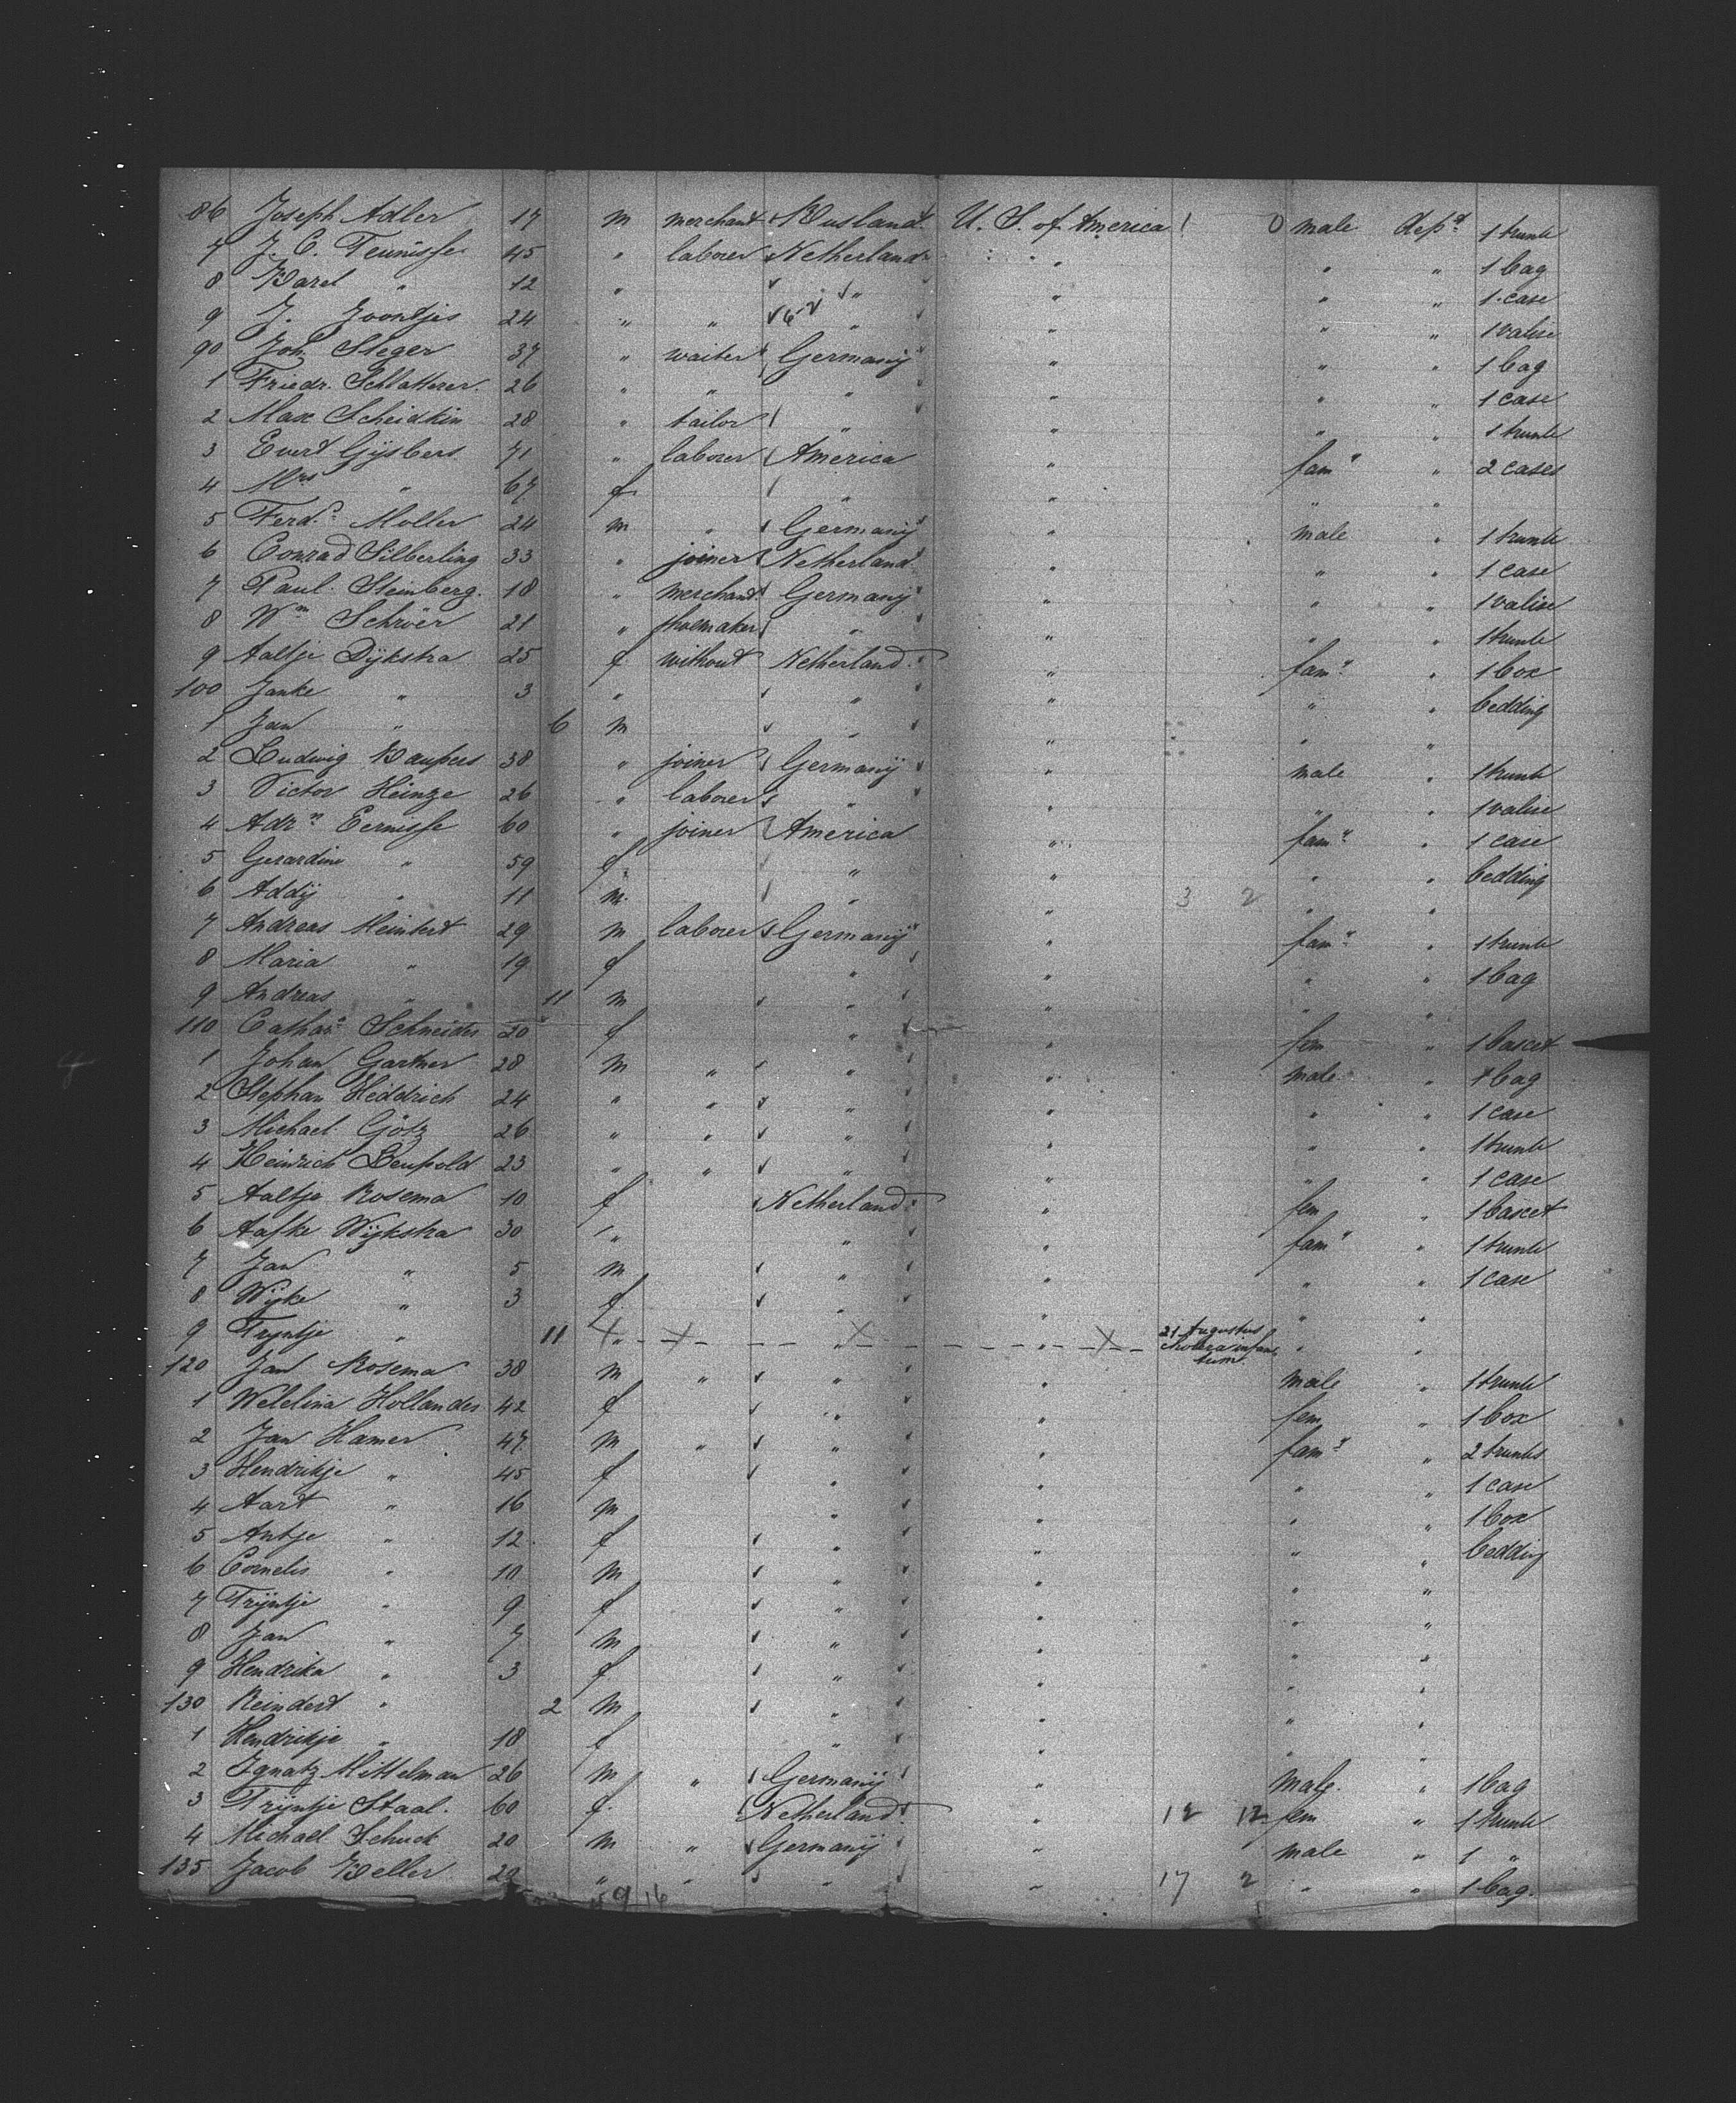 86 Joseph Adler 17 m merchant Rusland U. S. of America ! 0 male dept 1 trunk
7 J. C. Teunisse 45 " laborer Netherland " " " 1 bag
8 Karel " 12 " " " " " 1 case
9 J. Joontjes 24 " " " " " " 1 valise
90 Joh. Steger 37 " waiter Germany " " " 1 bag
1 Friedr. Schlatterer 26 " " " " " " 1 case
2 Max Scheidkin 28 " tailor " " " " 1 trunk
3 Evert Gijsbers 71 " laborer America " famy " 2 cases
4 Mrs " 67 f " " " "
5 Ferd. Moller 24 m " Germany " male " 1 trunk
6 Conrad Silberling 33 " joiner Netherland " " " 1 case
7 Paul Steinberg 18 " merchant Germany " " " 1 valise
8 Wm Schröer 21 " shoemaker " " " " 1 trunk
9 Aaltje Dijkstra 25 f without Netherland " famy " 1 box
100 Janke " 3 " " " " " bedding
1 Jan " 6 m " " " "
2 Ludwig Kaupers 38 " joiner Germany " male " 1 trunk
3 Victor Heinze 26 " laborer " " " " 1 valise
4 Adrn Eernisse 60 " joiner America " famy " 1 case
5 Gerardine " 59 f " " " " bedding
6 Addij " 11 m " " 3 2 " "
7 Andreas Meintert 29 m laborer Germany " famy " 1 trunk
8 Maria " 19 f " " " " 1 bag
9 Andreas " 11 m " " " "
110 Catha. Schneider 20 f " " fem " 1 bascet
1 Johan Gartner 28 m " " " male " 1 bag
2 Stephan Heddrich 24 " " " " " " 1 case
3 Michael Götz 26 " " " " " " 1 trunk
4 Heinrich Leupold 23 " " " " " " 1 case
5 Aaltje Rosema 10 f Netherland " fem " 1 bascet
6 Aafke Wijkstra 30 " " " famy " 1 trunk
7 Jan " 5 m " " " " 1 case
8 Wijke " 3 f " " " "
9 Trijntje " 11 " " " 21 Augustus cholera infantum " "
120 Jan Rosema 38 m " " " male " 1 trunk
1 Welelina Hollander 42 f " " fem " 1 box
2 Jan Hamer 47 m " " " famy " 2 trunks
3 Hendrikje " 45 f " " " " 1 case
4 Aart " 16 m " " " " 1 box
5 Antje " 12 f " " " " bedding
6 Cornelis " 10 m " " " "
7 Trijntje " 9 f " " " "
8 Jan " 7 m " " " "
9 Hendrika " 3 f " " " "
130 Reindert " 2 m " " " "
1 Hendrikje " 18 f " " " "
2 Ignatz Mittelman 26 m " Germany " male " 1 bag
3 Trijntje Staal 60 f Netherland " 12 12 fem " 1 trunk
4 Michael Schuck 20 m " Germany " male " 1 "
135 Jacob Keller 22 " " " " 17 2 " " 1 bag
9 16